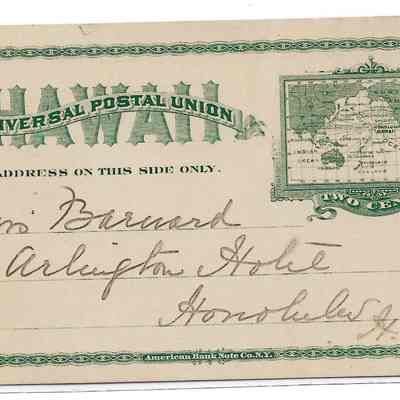 HAWAII
IVERSAL POSTAL UNION
ADDRESS ON THIS SIDE ONLY.
INDIAN
OCEAN
TWO CEN
Barnard
Arlington Hotel
Honolulu H
American Bank Note Co. N.Y.